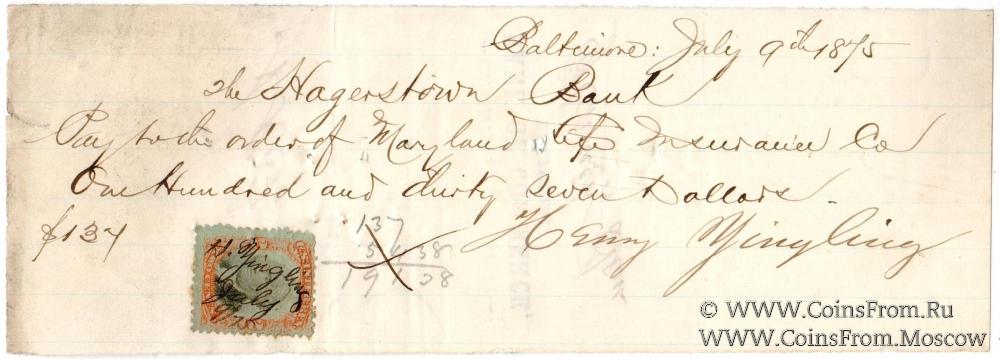 Baltimore: July 9th 1875
The Hagerstown Bank
Pay to the order of Maryland Life Insurance Co
One Hundred and thirty seven Dollars.
$137
Henry Yingling
137
54 38
191 38
H. Yingling
July
© WWW.CoinsFrom.Ru
WWW.CoinsFrom.Moscow